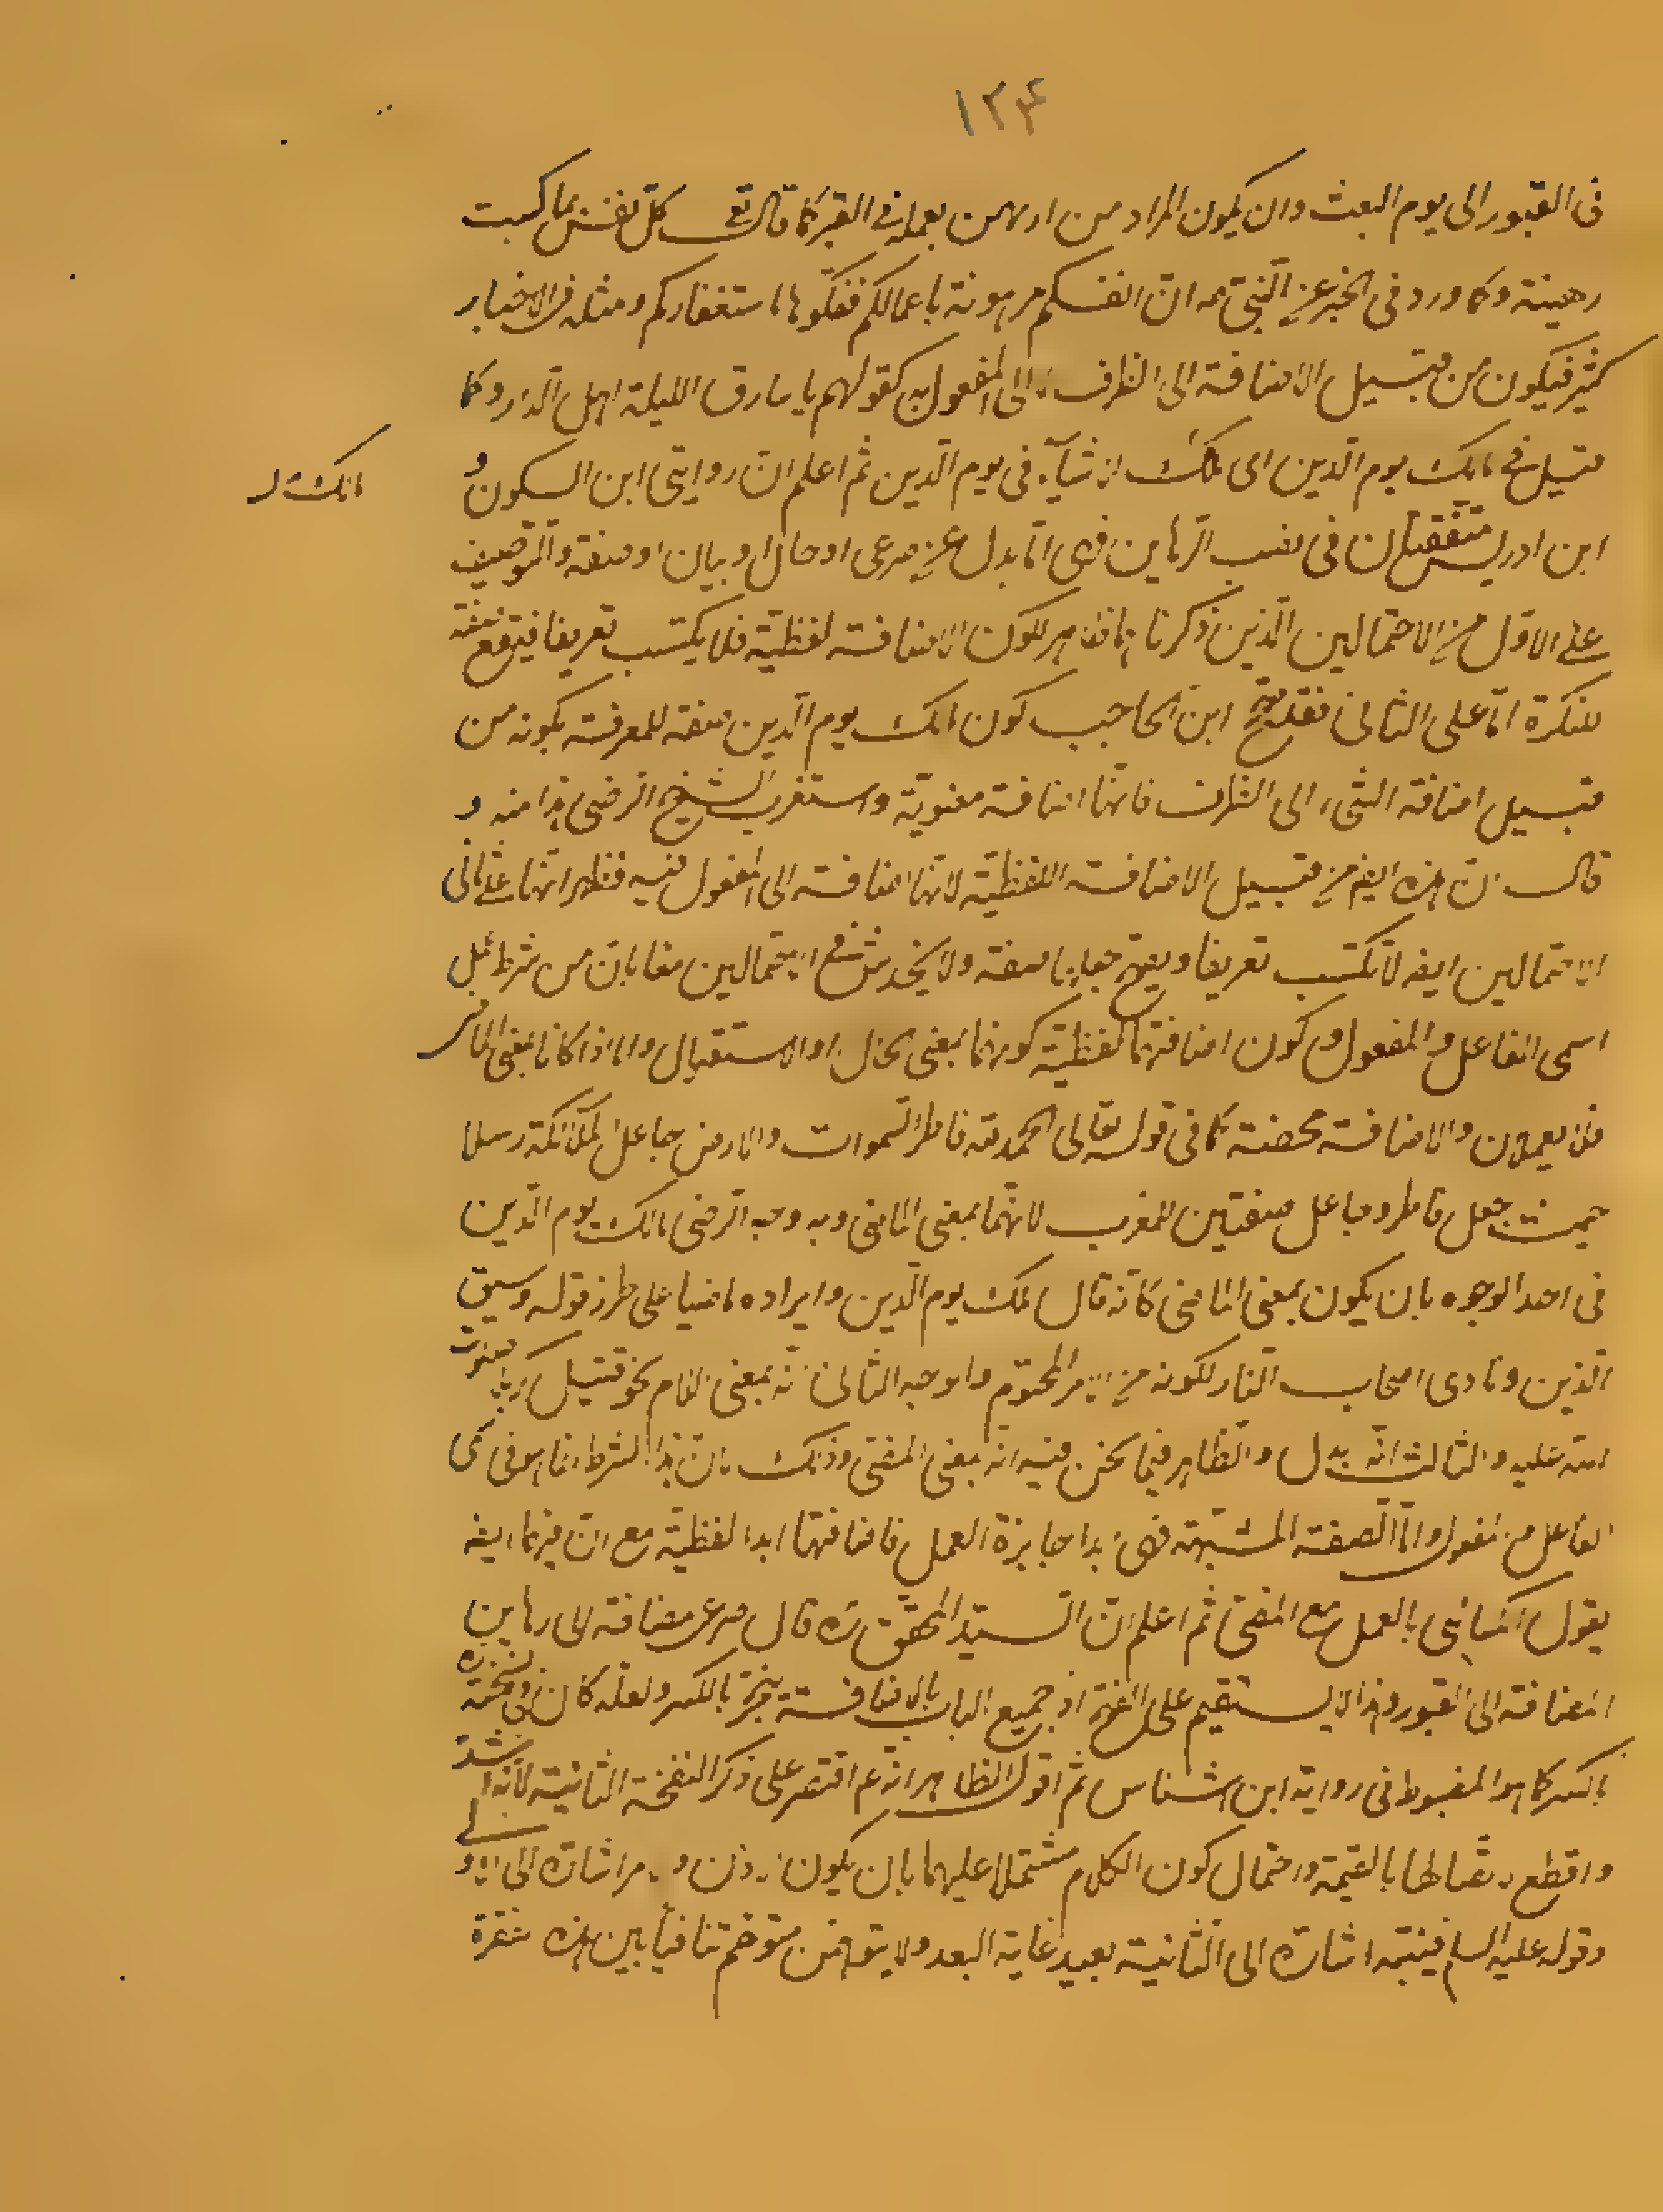 ١٣۴
فى القبور الى يوم البعث وان يكون المراد من ارتهن بعمله فى القبر كما قال تع كل نفس بما كسبت
رهينة وكما ورد فى الخبر عن النبى ص ان انفسكم مرهونة باعمالكم ففكوها باستغفاركم ومثله فى الاخبار
كثير فيكون من قبيل الاضافة الى الظرف الى المفعول به كقولهم يا سارق الليلة اهل الدار وكما
قيل فى مالك يوم الدين اى ملك الاشياء فى يوم الدين ثم اعلم ان روايتى ابن السكون و
مالك
ابن ادريس متفقتان فى نصب الرهاين فهى اما بدل عن صرعى او حال او بيان او صفة والتوصيف
على الاول من الاحتمالين الذين ذكرنا هما ظاهر لكون الاضافة لفظية فلا يكتسب تعريفا فيقع صفة
للنكرة اما على الثانى فقد ابن الحاجب كون مالك يوم الدين صفة للمعرفة بكونه من
قبيل اضافة الشىء الى الظرف فانها اضافة معنوية واستغرب الشيخ الرضى هذا منه و
قال ان هذه ايض من قبيل الاضافة اللفظية لانها اضافة الى المفعول فيه فظهر انها على ثانى
الاحتمالين ايضا لا تكتسب تعريفا ويصح جعلها صفة ولا يخدش فى الاحتمالين معا بان من شرط عمل
اسمى الفاعل والمفعول وكون اضافتهما لفظية كونهما بمعنى الحال او الاستقبال واما اذا كانا بمعنى الماضى
فلا يعملان والاضافة محضة كما فى قوله تعالى الحمد لله فاطر السموات والارض جاعل الملائكة رسلا
حيث جعل فاطر وجاعل صفتين للمعرف لانهما بمعنى الماضى وبه وجه الرضى مالك يوم الدين
فى احد الوجوه بان يكون بمعنى الماضى كانه قال ملك يوم الدين وايراده ماضيا على طرز قوله وسيق
الذين ونادى اصحاب النار لكونه من الامر المحتوم والوجه الثانى انه بمعنى اللام نحو قتيل كربلا صلوات
الله عليه والثالث انه بدل والظاهر فيما نحن فيه انه بمعنى المضى وذلك بان هذا الشرط انما هو فى اسمى
الفاعل والمفعول واما الصفة المشبهة فهى ابدا جايزة العمل فاضافتها ابدا لفظية مع ان فيهما ايضا
يقول الكسائى بالعمل مع المضى ثم اعلم ان السيد المحقق ره قال صرعى مضافة الى رهاين
المضافة الى القبور وهذا لا يستقيم على الفتح اذ جميع الباب بالاضافة ينجر بالكسر ولعله كان فى نسخته
بالكسر كما هو المضبوط فى رواية ابن اشناس ثم اقول الظاهر انه ع اقتصر على ذكر النفخة الثانية لانها اشد
واقطع اتصالها بالقيمة واحتمال كون الكلام مشتملا عليهما بان يكون الاذن والامر اشارة الى الاولى
وقوله عليه السلام فينبه اشارة الى الثانية بعيد غاية البعد ولا متوهم تنافيا بين هذه الفقرة